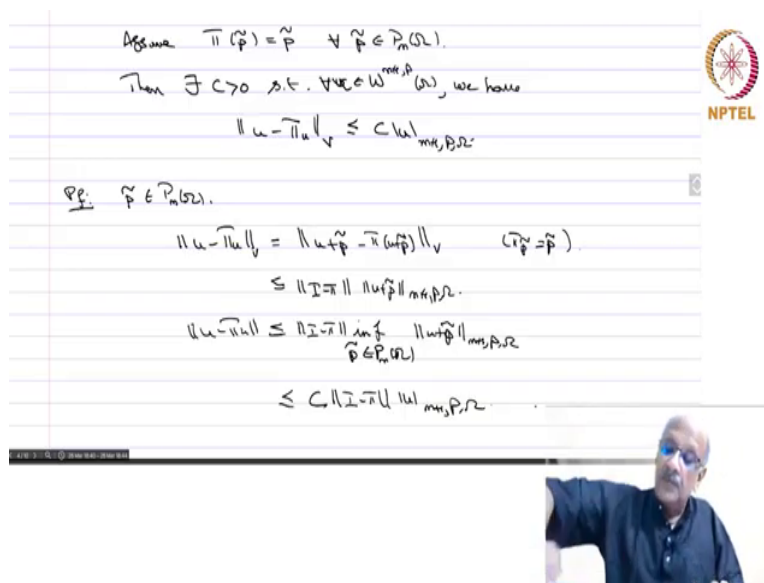 Assume Π(p̃) = p̃ ∀ p̃ ∈ Pₘ(Ω).
Then ∃ C>0 s.t. ∀ u ∈ W^{m+1,p}(Ω), we have
‖u - Πu‖_V ≤ C|u|_{m+1,p,Ω}.
Pf: p̃ ∈ Pₘ(Ω).
‖u - Πu‖_V = ‖u+p̃ - Π(u+p̃)‖_V (Πp̃ = p̃).
≤ ‖I-Π‖ ‖u+p̃‖_{m+1,p,Ω}.
‖u-Πu‖ ≤ ‖I-Π‖ inf ‖u+p̃‖_{m+1,p,Ω}
p̃ ∈ Pₘ(Ω)
≤ C‖I-Π‖ |u|_{m+1,p,Ω}.
NPTEL